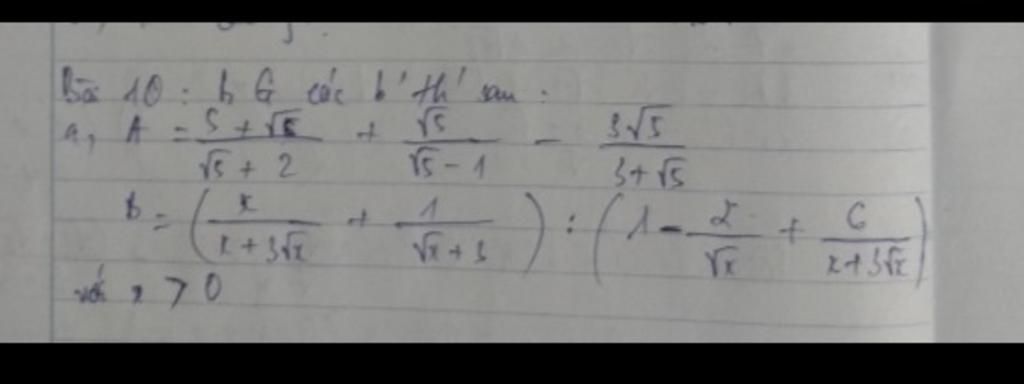 Bài 10 : h G các b' th' sau :
a, A = \frac{5 + \sqrt{5}}{\sqrt{5} + 2} + \frac{\sqrt{5}}{\sqrt{5} - 1} - \frac{3\sqrt{5}}{3 + \sqrt{5}}
B = \left( \frac{x}{x + 3\sqrt{x}} + \frac{1}{\sqrt{x} + 3} \right) : \left( 1 - \frac{2}{\sqrt{x}} + \frac{6}{x + 3\sqrt{x}} \right)
với x > 0